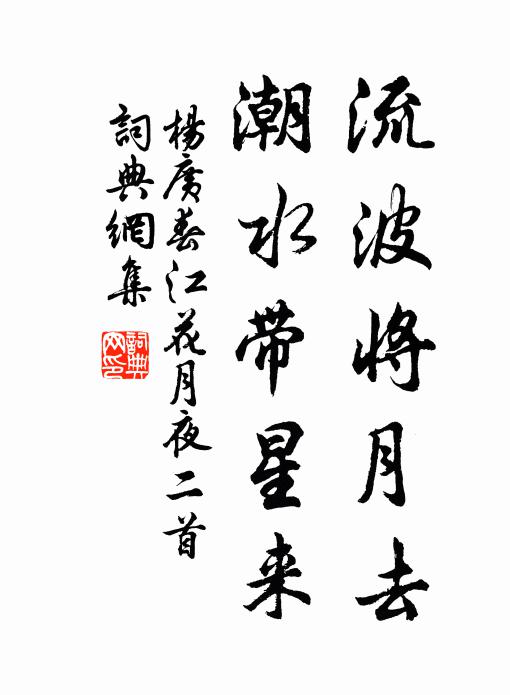 流波将月去
潮水带星来
楊廣春江花月夜二首
詞典網集
詞典网印